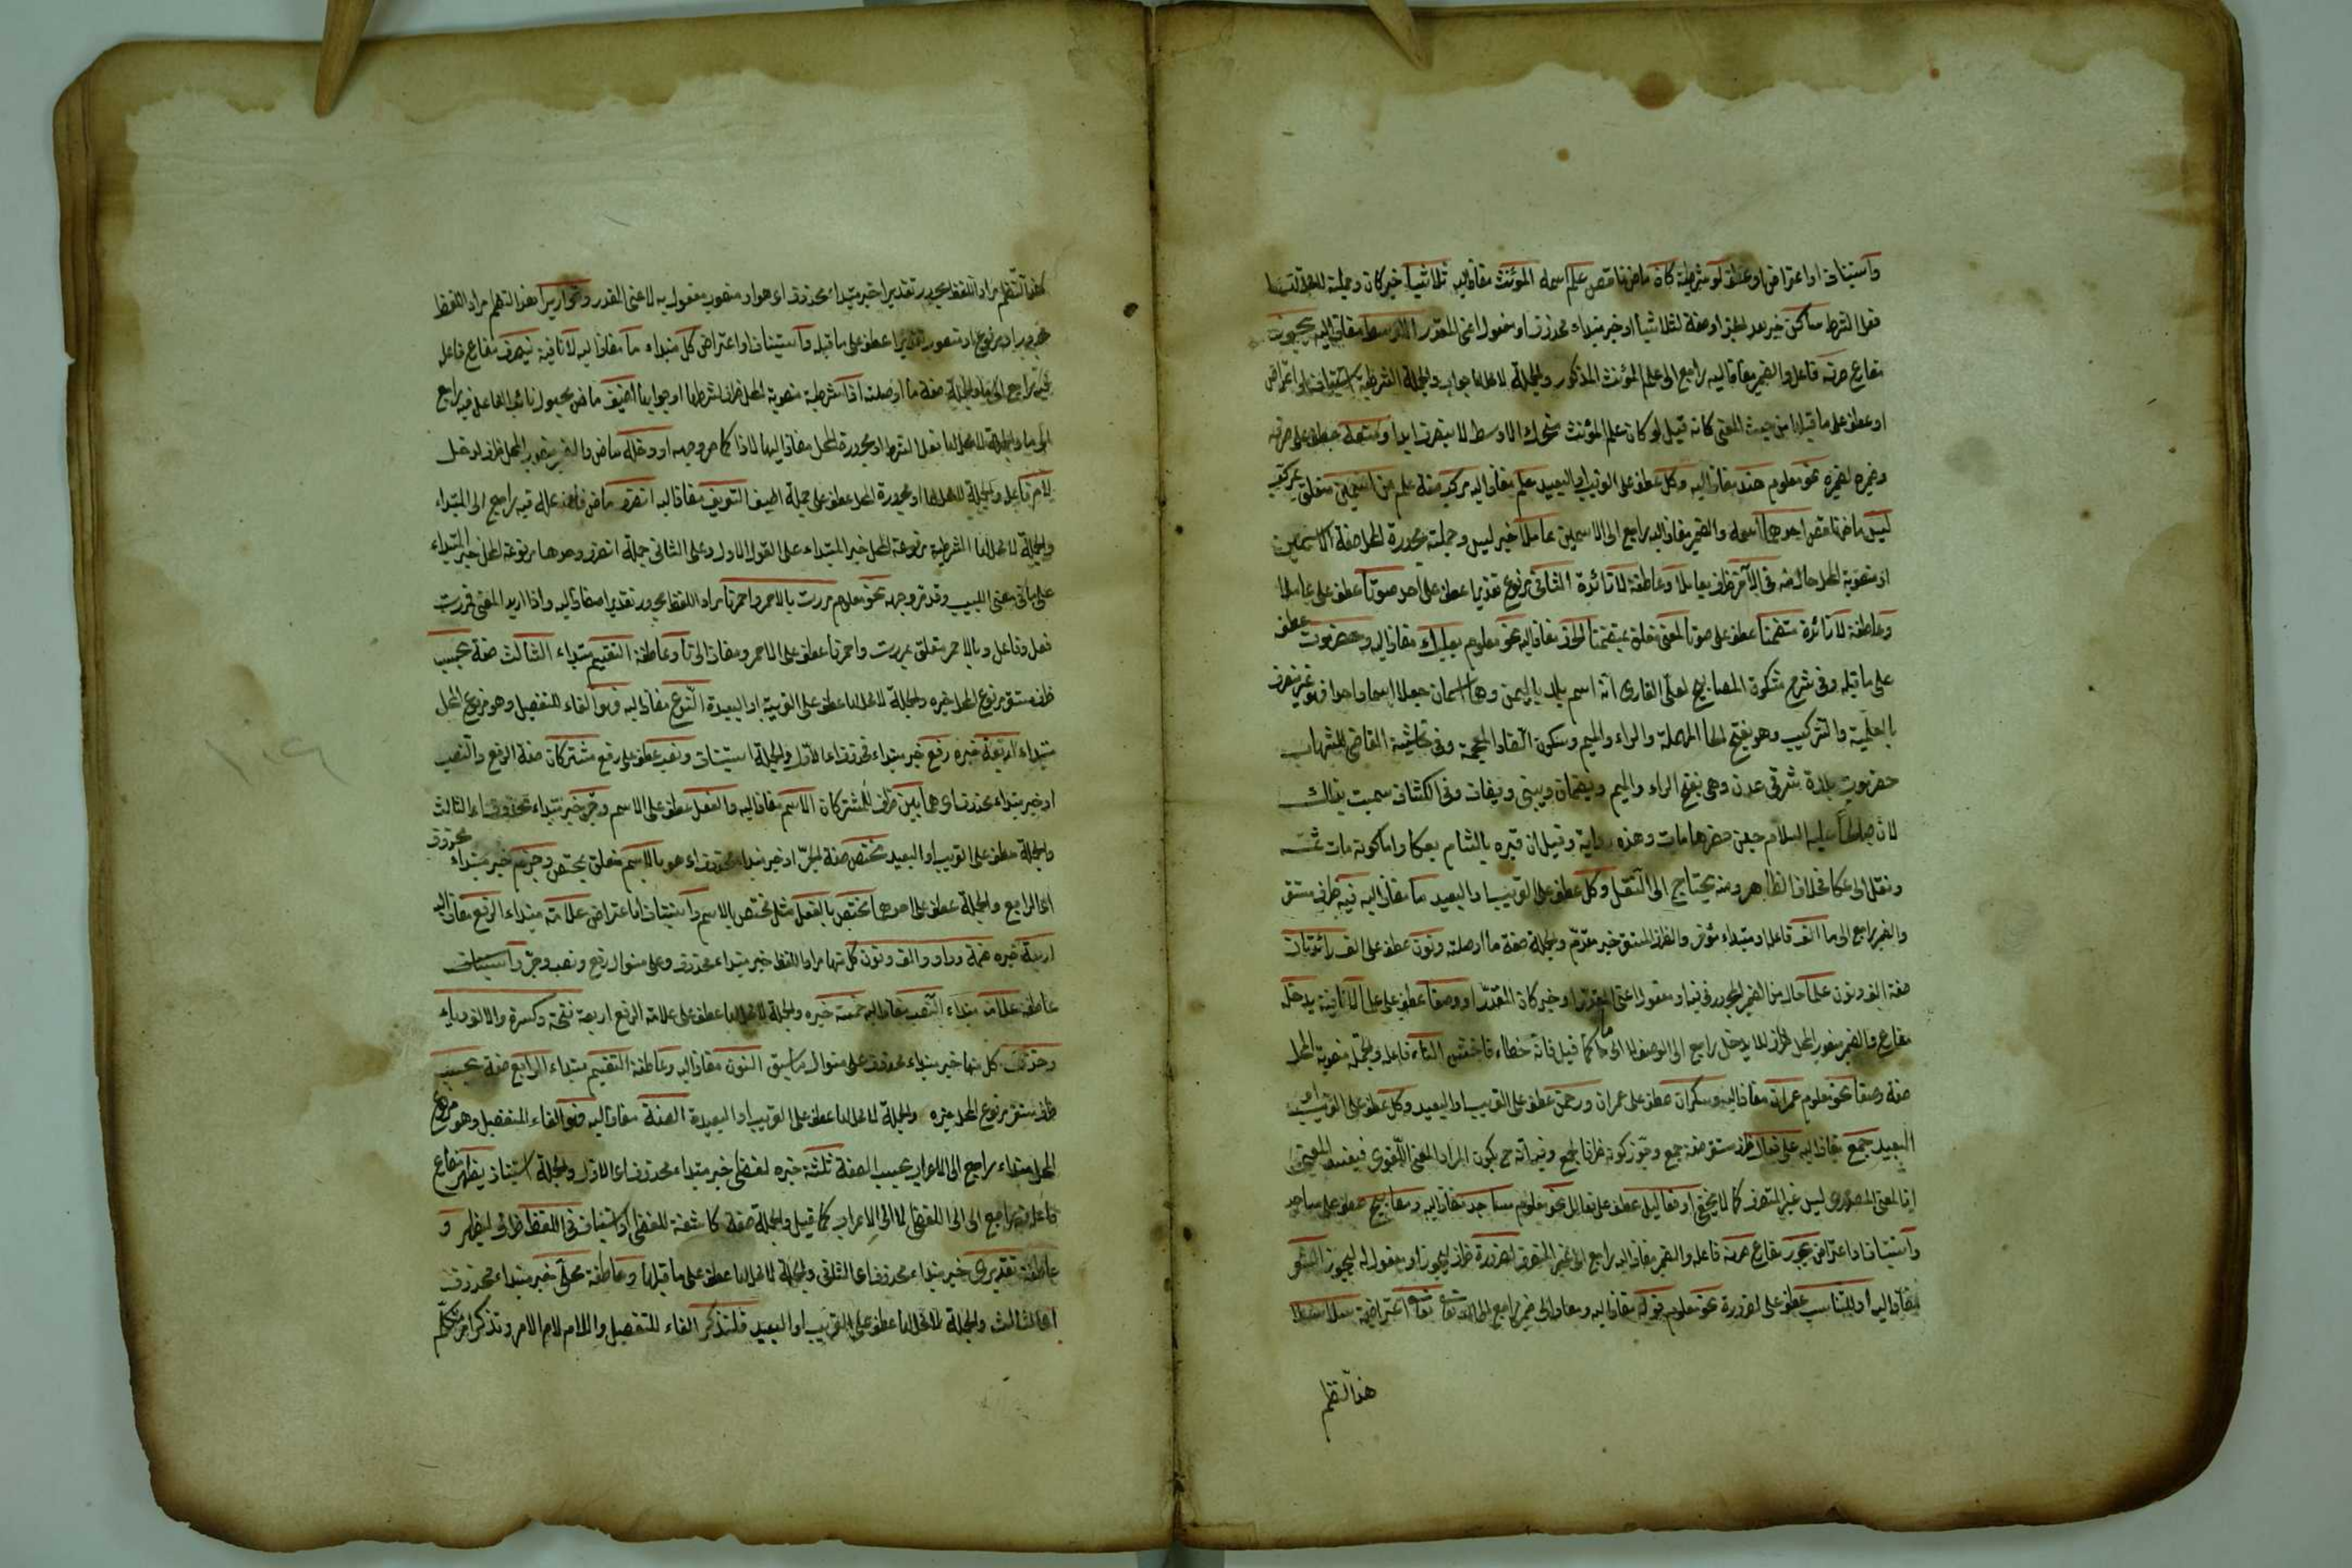 واستيناف او اعتراض او عطف لو شرطية كان ماض ناقص علم اسمه المؤنث مضاف اليه ثلاثيا خبر كان وجملته لا محل لها
فعل الشرط ساكن خبر بعد الخبر او صفة لثلاثيا او خبر مبتداء محذوف او مفعول اعنى المقدر الاوسط مضاف اليه يجوز
مضارع صرفه فاعل والضمير مضاف اليه راجع الى علم المؤنث المذكور والجملة لا محل لها جواب والجملة الشرطية استيناف او اعتراض
او عطف على ما قبلها من حيث المعنى كانه قيل لو كان علم المؤنث متحرك الاوسط لا ينصرف ابدا ومنعه عطف على صرفه
وضميره لضميره نحو معلوم هند مضاف اليه وكل عطف على القريب او البعيد علم مضاف اليه مركب صفة علم من اسمين متعلق بمركب
ليس ماض ناقص احدهما اسمه والضمير مضاف اليه راجع الى الاسمين عاملا خبر ليس وجملته مجرورة المحل صفة الاسمين
او منصوبة المحل حال منه فى الآخر ظرف لعاملا وعاطفة لا زائدة الثانى مرفوع تقديرا عطف على احد صوتا عطف على عاملا
وعاطفة لا زائدة متضمنا عطف على صوتا لمعنى متعلق بمتضمنا الحرف مضاف اليه نحو معلوم بعلبك مضاف اليه وحضرموت عطف
على ما قبله وفى شرح مشكوة المصابيح لعلى القارى انه اسم بلد باليمن وهما اسمان جعلا اسما واحدا فهو غير منصرف
بالعلمية والتركيب وهو بفتح الحا المهملة والراء والميم وسكون الضاد المعجمة وفى حاشية القاضى للشهاب
حضرموت بلدة شرقى عدن وهى بفتح الراء والميم ويضمان ويبنى ويضاف وفى الكشاف سميت بذلك
لان صالحا عليه السلام حين حضرها مات وهذه رواية وقيل ان قبره بالشام بعكا واما كونه مات ثمه
ونقل الى عكا فخلاف الظاهر ومنه يحتاج الى النقل وكل عطف على القريب او البعيد ما مضاف اليه فيه ظرف مستقر
والضمير راجع الى ما الف فاعله او مبتداء مؤخر والظرف المستقر خبر مقدم والجملة صفة ما او صلته ونون عطف على الف زائدتان
صفة الف ونون علما حال من الضمير المجرور فى فيه او مفعول اعنى المقدر او خبر كان المقدر او وصفا عطف على علما لا نافية يدخل
مضارع والضمير منصوب المحل ظرف للا يدخل راجع الى الوصف لا الى ما كما قيل فانه خطاء فاحش التاء فاعله والجملة منصوبة المحل
صفة وصفا نحو معلوم عمران مضاف اليه وسكران عطف على عمران ورحمن عطف على القريب او البعيد وكل عطف على القريب او
البعيد جمع مضاف اليه على فعالل ظرف مستقر صفة جمع وتجوز كونه ظرفا لجمع وفيه انه ح يكون المراد المعنى اللغوى فيفسد المعنى
اذ المعنى المصدرى ليس غير المنصرف كما لا يخفى او فعاليل عطف على فعالل نحو معلوم مساجد مضاف اليه ومصابيح عطف على مساجد
واستيناف او اعتراض يجوز مضارع صرفه فاعله والضمير مضاف اليه راجع الى غير المنصرف لضرورة ظرف ليجوز او مفعول له ليجوز الشعر
مضاف اليه او للتناسب عطف على لضرورة نحو معلوم قوله مضاف اليه ومضاف الى ضمير راجع الى الله تعالى تعالى اعتراضية سلاسلا
هذا النظم
هذا النظم مراد اللفظ مجرور تقديرا خبر مبتداء محذوف اى هو او منصوب مفعول به لاعنى المقدر وقواريرا هذا النظم مراد اللفظ
مجرور او مرفوع او منصوب تقديرا عطف على ما قبله واستيناف او اعتراض كل مبتداء ما مضاف اليه لا نافية ينصرف مضارع فاعل
فيه راجع الى ما والجملة صفة ما او صلته اذا شرطية منصوبة المحل ظرف لشرطها او جوابها اضيف ماض مجهول نائب الفاعل فيه راجع
الى ما والجملة لا محل لها فعل الشرط او مجرورة المحل مضاف اليها لاذا كما مر وجهه او دخله ماض والضمير منصوب المحل ظرف لدخل
لام فاعله والجملة لا محل لها او مجرورة المحل عطف على جملة اضيف التعريف مضاف اليه انصرف ماض فاعله فيه راجع الى المبتداء
والجملة لا محل لها الشرطية مرفوعة المحل خبر المبتداء على القول الاول وعلى الثانى جملة انصرف وحدها مرفوعة المحل خبر المبتداء
على ما فى مغنى اللبيب وقد مر وجهه نحو معلوم مررت بالاحمر واحمرنا مراد اللفظ مجرور تقديرا مضاف اليه واذا اريد المعنى فمررت
فعل وفاعل وبالاحمر متعلق بمررت واحمرنا عطف على الاحمر ومضاف الى نا وعاطفة التقسيم مبتداء الثالث صفة بحسب
ظرف مستقر مرفوع المحل خبره والجملة لا محل لها عطف على القريبة او البعيدة النوع مضاف اليه وهو الفاء للتفصيل وهو مرفوع المحل
مبتداء اربعة خبره رفع خبر مبتداء محذوف اى الاول والجملة استيناف ونصب عطف على رفع مشتركان صفة الرفع والنصب
او خبر مبتداء محذوف اى هما بين ظرف لمشتركان الاسم مضاف اليه والفعل عطف على الاسم وجر خبر مبتداء محذوف اى الثالث
والجملة عطف على القريب او البعيد مختص صفة الجر او خبر مبتداء محذوف اى هو بالاسم متعلق بمختص وجزم خبر مبتداء محذوف
اى الرابع والجملة عطف على احدهما مختص بالفعل مثل مختص بالاسم واستيناف او اعتراض علامة مبتداء الرفع مضاف اليه
اربعة خبره ضمة وواو والف ونون كل منها مراد اللفظ خبر مبتداء محذوف وعلى منوال رفع ونصب وجر واستيناف
عاطفة علامة مبتداء النصب مضاف اليه خمسة خبره والجملة لا محل لها عطف على علامة الرفع اربعة فتحة وكسرة والالف وياء
وحذف كل منها خبر مبتداء محذوف على منوال ما سبق النون مضاف اليه وعاطفة التقسيم مبتداء الرابع صفة بحسب
ظرف مستقر مرفوع المحل خبره والجملة لا محل لها عطف على القريب او البعيدة الصفة مضاف اليه وهو الفاء للتفصيل وهو مرفوع
المحل مبتداء راجع الى الاعراب بحسب الصفة ثلثة خبره لفظى خبر مبتداء محذوف اى الاول والجملة استيناف يظهر مضارع
فاعله فيه راجع الى اللفظى لا الى الاعراب كما قيل والجملة صفة كاشفة للفظى او استيناف فى اللفظ ظرف ليظهر و
عاطفة تقديرى خبر مبتداء محذوف اى الثانى والجملة لا محل لها عطف على ما قبلها وعاطفة محلى خبر مبتداء محذوف
اى الثالث والجملة لا محل لها عطف على القريب او البعيد فلنذكر الفاء للتفصيل واللام لام الامر ونذكر امر متكلم